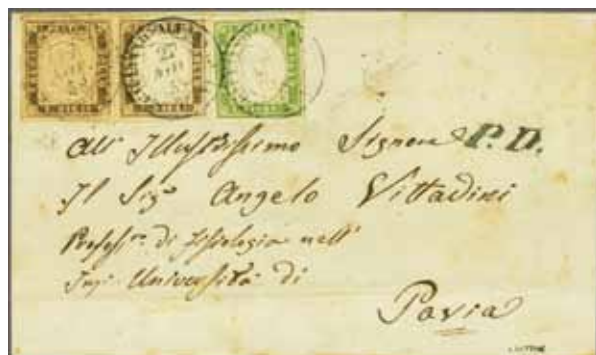 All' Illustrissimo Signore P.D.
Il Sigr Angelo Vittadini
Profess.re di Fisiologia nell'
Imp. Università di
Pavia